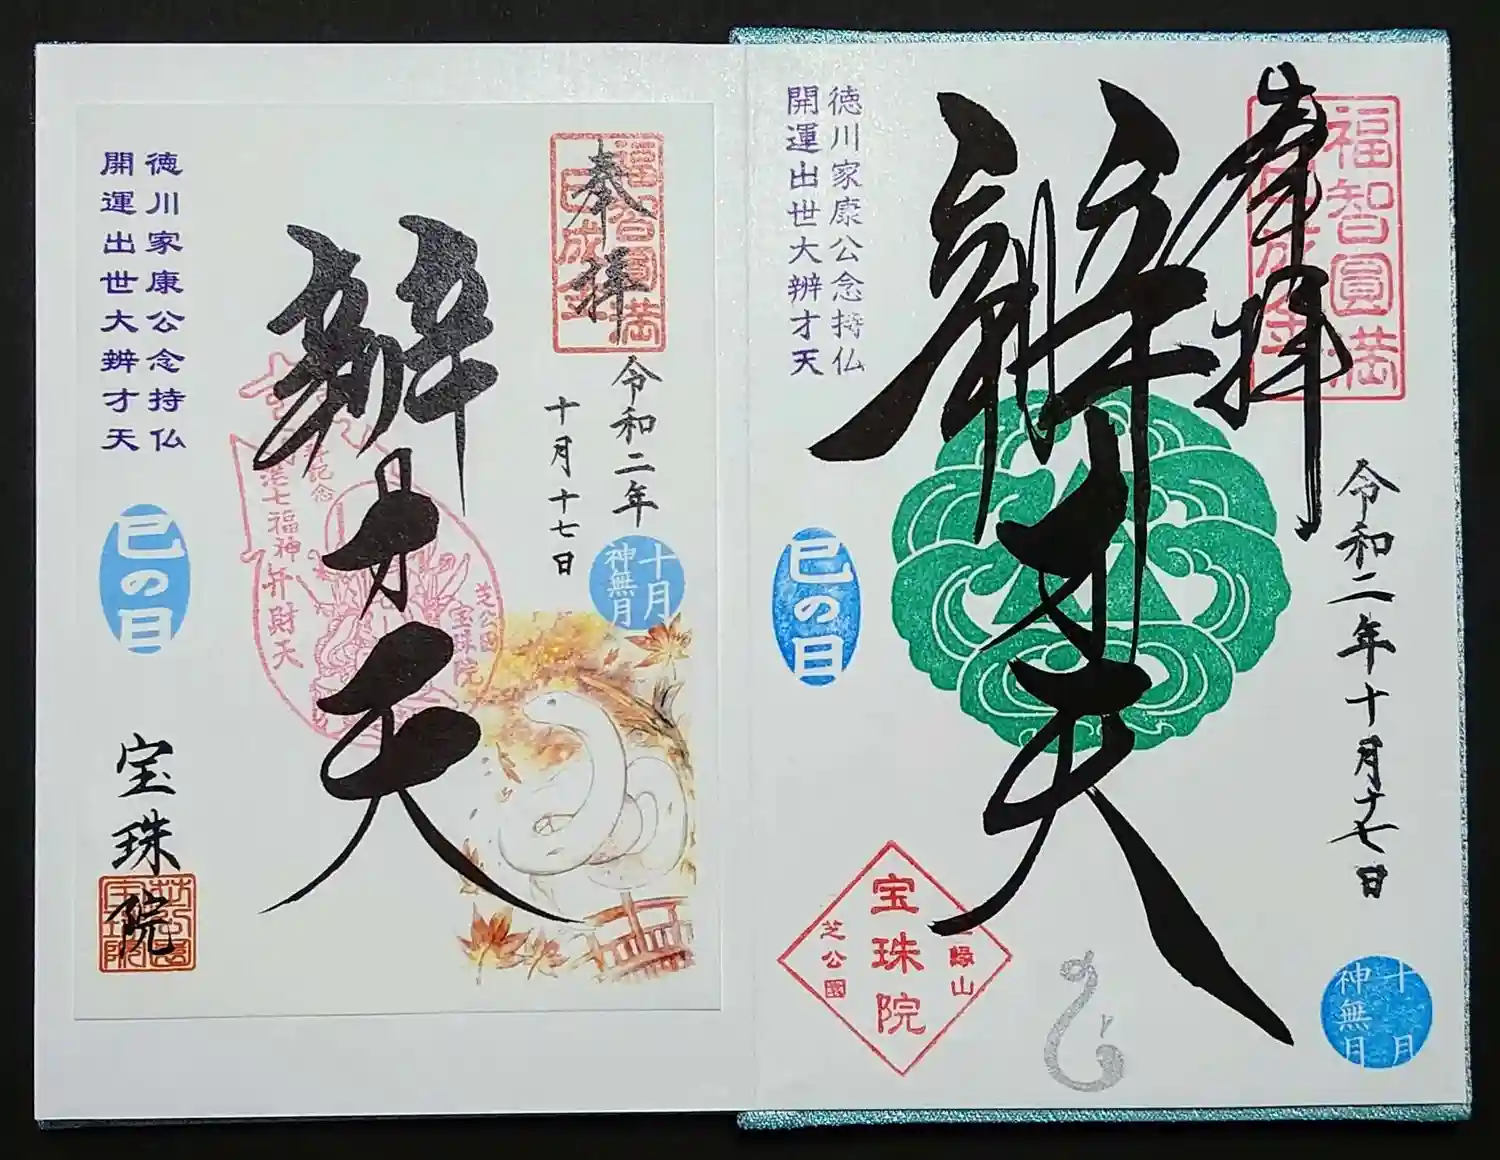 奉拝
福智圓満
令和二年
十月十七日
十月
神無月
辨才天
七福神
弁財天
芝公園
宝珠院
徳川家康公念持仏
開運出世大辨才天
巳の日
宝珠院
奉拝
福智圓満
令和二年十月十七日
十月
神無月
辨才天
徳川家康公念持仏
開運出世大辨才天
巳の日
縁山
宝珠院
芝公園